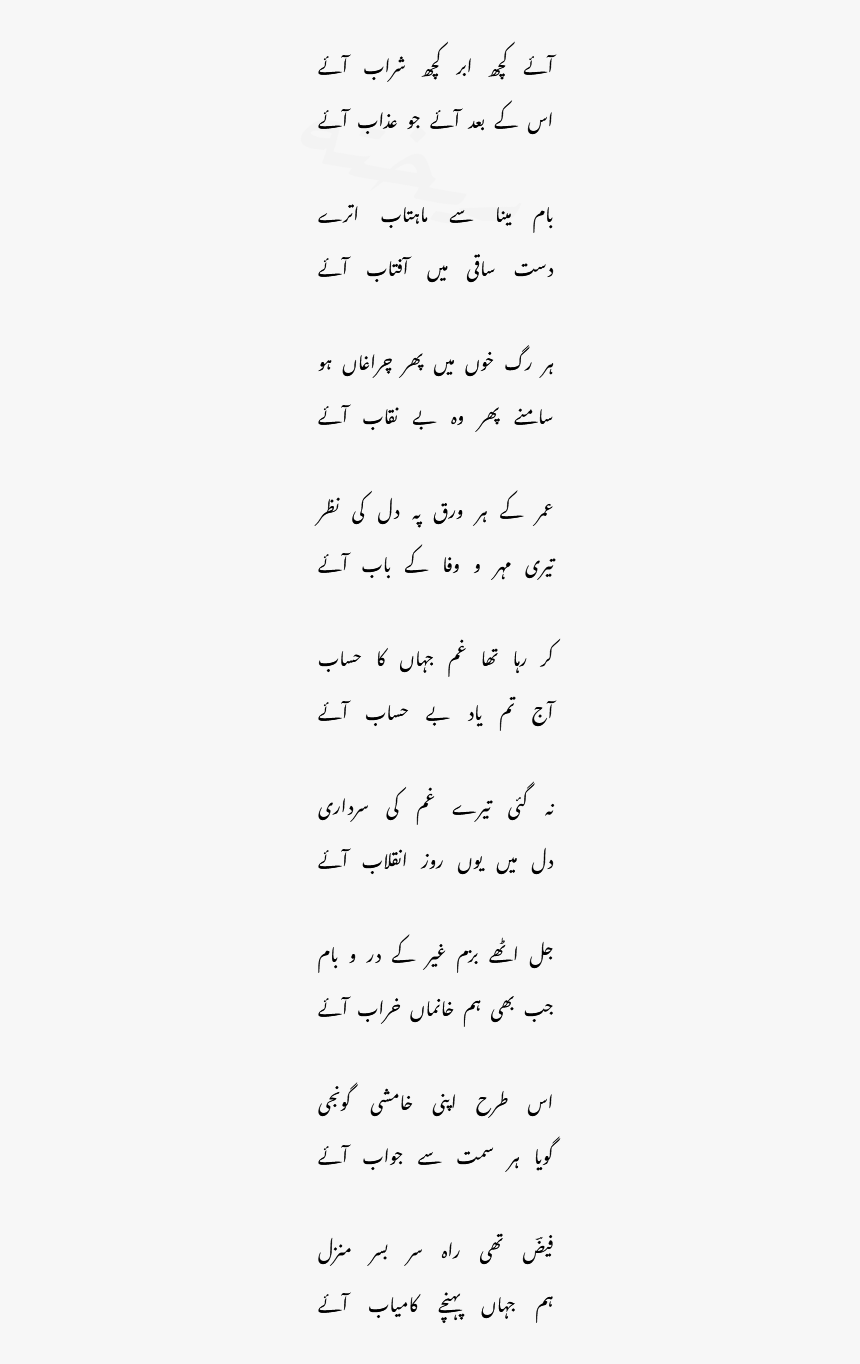 آئے کچھ ابر کچھ شراب آئے
اس کے بعد آئے جو عذاب آئے
بام مینا سے ماہتاب اترے
دست ساقی میں آفتاب آئے
ہر رگ خوں میں پھر چراغاں ہو
سامنے پھر وہ بے نقاب آئے
عمر کے ہر ورق پہ دل کی نظر
تیری مہر و وفا کے باب آئے
کر رہا تھا غم جہاں کا حساب
آج تم یاد بے حساب آئے
نہ گئی تیرے غم کی سرداری
دل میں یوں روز انقلاب آئے
جل اٹھے بزم غیر کے در و بام
جب بھی ہم خانماں خراب آئے
اس طرح اپنی خامشی گونجی
گویا ہر سمت سے جواب آئے
فیضؔ تھی راہ سر بسر منزل
ہم جہاں پہنچے کامیاب آئے